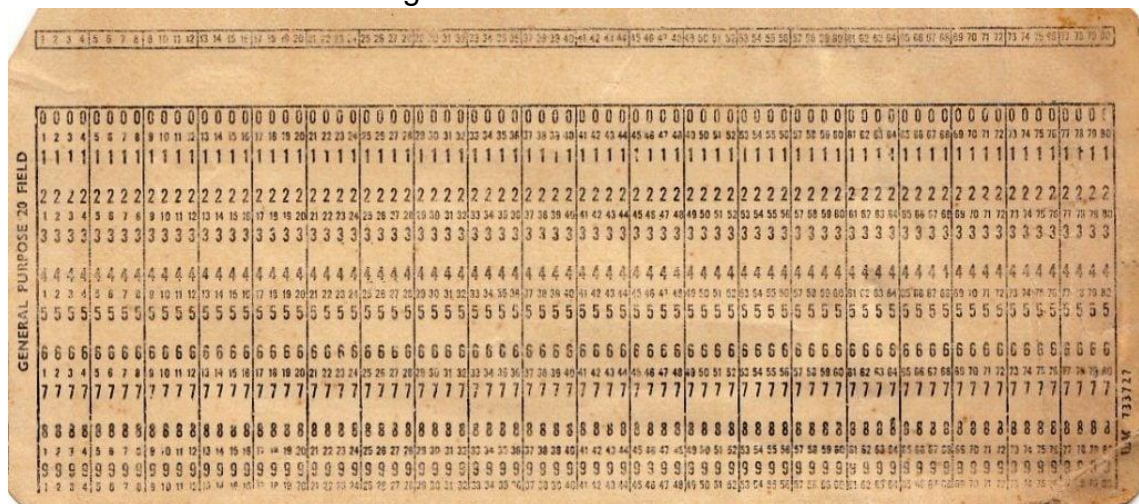 1 2 3 4 5 6 7 8 9 10 11 12 13 14 15 16 17 18 19 20 21 22 23 24 25 26 27 28 29 30 31 32 33 34 35 36 37 38 39 40 41 42 43 44 45 46 47 48 49 50 51 52 53 54 55 56 57 58 59 60 61 62 63 64 65 66 67 68 69 70 71 72 73 74 75 76 77 78 79 80
GENERAL PURPOSE 20 FIELD
0 0 0 0 0 0 0 0 0 0 0 0 0 0 0 0 0 0 0 0 0 0 0 0 0 0 0 0 0 0 0 0 0 0 0 0 0 0 0 0 0 0 0 0 0 0 0 0 0 0 0 0 0 0 0 0 0 0 0 0 0 0 0 0 0 0 0 0 0 0 0 0 0 0 0 0 0 0 0 0
1 2 3 4 5 6 7 8 9 10 11 12 13 14 15 16 17 18 19 20 21 22 23 24 25 26 27 28 29 30 31 32 33 34 35 36 37 38 39 40 41 42 43 44 45 46 47 48 49 50 51 52 53 54 55 56 57 58 59 60 61 62 63 64 65 66 67 68 69 70 71 72 73 74 75 76 77 78 79 80
1 1 1 1 1 1 1 1 1 1 1 1 1 1 1 1 1 1 1 1 1 1 1 1 1 1 1 1 1 1 1 1 1 1 1 1 1 1 1 1 1 1 1 1 1 1 1 1 1 1 1 1 1 1 1 1 1 1 1 1 1 1 1 1 1 1 1 1 1 1 1 1 1 1 1 1 1 1 1 1
2 2 2 2 2 2 2 2 2 2 2 2 2 2 2 2 2 2 2 2 2 2 2 2 2 2 2 2 2 2 2 2 2 2 2 2 2 2 2 2 2 2 2 2 2 2 2 2 2 2 2 2 2 2 2 2 2 2 2 2 2 2 2 2 2 2 2 2 2 2 2 2 2 2 2 2 2 2 2 2
1 2 3 4 5 6 7 8 9 10 11 12 13 14 15 16 17 18 19 20 21 22 23 24 25 26 27 28 29 30 31 32 33 34 35 36 37 38 39 40 41 42 43 44 45 46 47 48 49 50 51 52 53 54 55 56 57 58 59 60 61 62 63 64 65 66 67 68 69 70 71 72 73 74 75 76 77 78 79 80
3 3 3 3 3 3 3 3 3 3 3 3 3 3 3 3 3 3 3 3 3 3 3 3 3 3 3 3 3 3 3 3 3 3 3 3 3 3 3 3 3 3 3 3 3 3 3 3 3 3 3 3 3 3 3 3 3 3 3 3 3 3 3 3 3 3 3 3 3 3 3 3 3 3 3 3 3 3 3 3
4 4 4 4 4 4 4 4 4 4 4 4 4 4 4 4 4 4 4 4 4 4 4 4 4 4 4 4 4 4 4 4 4 4 4 4 4 4 4 4 4 4 4 4 4 4 4 4 4 4 4 4 4 4 4 4 4 4 4 4 4 4 4 4 4 4 4 4 4 4 4 4 4 4 4 4 4 4 4 4
1 2 3 4 5 6 7 8 9 10 11 12 13 14 15 16 17 18 19 20 21 22 23 24 25 26 27 28 29 30 31 32 33 34 35 36 37 38 39 40 41 42 43 44 45 46 47 48 49 50 51 52 53 54 55 56 57 58 59 60 61 62 63 64 65 66 67 68 69 70 71 72 73 74 75 76 77 78 79 80
5 5 5 5 5 5 5 5 5 5 5 5 5 5 5 5 5 5 5 5 5 5 5 5 5 5 5 5 5 5 5 5 5 5 5 5 5 5 5 5 5 5 5 5 5 5 5 5 5 5 5 5 5 5 5 5 5 5 5 5 5 5 5 5 5 5 5 5 5 5 5 5 5 5 5 5 5 5 5 5
6 6 6 6 6 6 6 6 6 6 6 6 6 6 6 6 6 6 6 6 6 6 6 6 6 6 6 6 6 6 6 6 6 6 6 6 6 6 6 6 6 6 6 6 6 6 6 6 6 6 6 6 6 6 6 6 6 6 6 6 6 6 6 6 6 6 6 6 6 6 6 6 6 6 6 6 6 6 6 6
1 2 3 4 5 6 7 8 9 10 11 12 13 14 15 16 17 18 19 20 21 22 23 24 25 26 27 28 29 30 31 32 33 34 35 36 37 38 39 40 41 42 43 44 45 46 47 48 49 50 51 52 53 54 55 56 57 58 59 60 61 62 63 64 65 66 67 68 69 70 71 72 73 74 75 76 77 78 79 80
7 7 7 7 7 7 7 7 7 7 7 7 7 7 7 7 7 7 7 7 7 7 7 7 7 7 7 7 7 7 7 7 7 7 7 7 7 7 7 7 7 7 7 7 7 7 7 7 7 7 7 7 7 7 7 7 7 7 7 7 7 7 7 7 7 7 7 7 7 7 7 7 7 7 7 7 7 7 7 7
8 8 8 8 8 8 8 8 8 8 8 8 8 8 8 8 8 8 8 8 8 8 8 8 8 8 8 8 8 8 8 8 8 8 8 8 8 8 8 8 8 8 8 8 8 8 8 8 8 8 8 8 8 8 8 8 8 8 8 8 8 8 8 8 8 8 8 8 8 8 8 8 8 8 8 8 8 8 8 8
1 2 3 4 5 6 7 8 9 10 11 12 13 14 15 16 17 18 19 20 21 22 23 24 25 26 27 28 29 30 31 32 33 34 35 36 37 38 39 40 41 42 43 44 45 46 47 48 49 50 51 52 53 54 55 56 57 58 59 60 61 62 63 64 65 66 67 68 69 70 71 72 73 74 75 76 77 78 79 80
9 9 9 9 9 9 9 9 9 9 9 9 9 9 9 9 9 9 9 9 9 9 9 9 9 9 9 9 9 9 9 9 9 9 9 9 9 9 9 9 9 9 9 9 9 9 9 9 9 9 9 9 9 9 9 9 9 9 9 9 9 9 9 9 9 9 9 9 9 9 9 9 9 9 9 9 9 9 9 9
1 2 3 4 5 6 7 8 9 10 11 12 13 14 15 16 17 18 19 20 21 22 23 24 25 26 27 28 29 30 31 32 33 34 35 36 37 38 39 40 41 42 43 44 45 46 47 48 49 50 51 52 53 54 55 56 57 58 59 60 61 62 63 64 65 66 67 68 69 70 71 72 73 74 75 76 77 78 79 80
733727